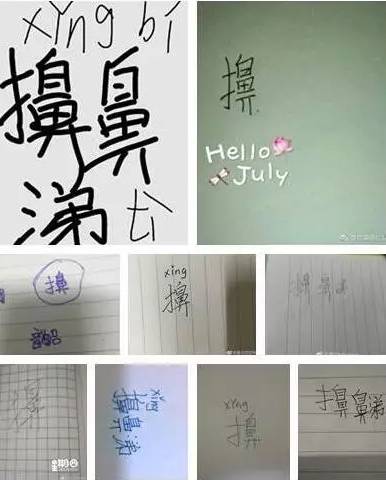 xǐng bí
擤鼻
涕 tì
擤
Hello
July
擤
xǐng
擤
擤鼻涕
擤
xǐng
擤鼻涕
xǐng
擤
擤鼻涕